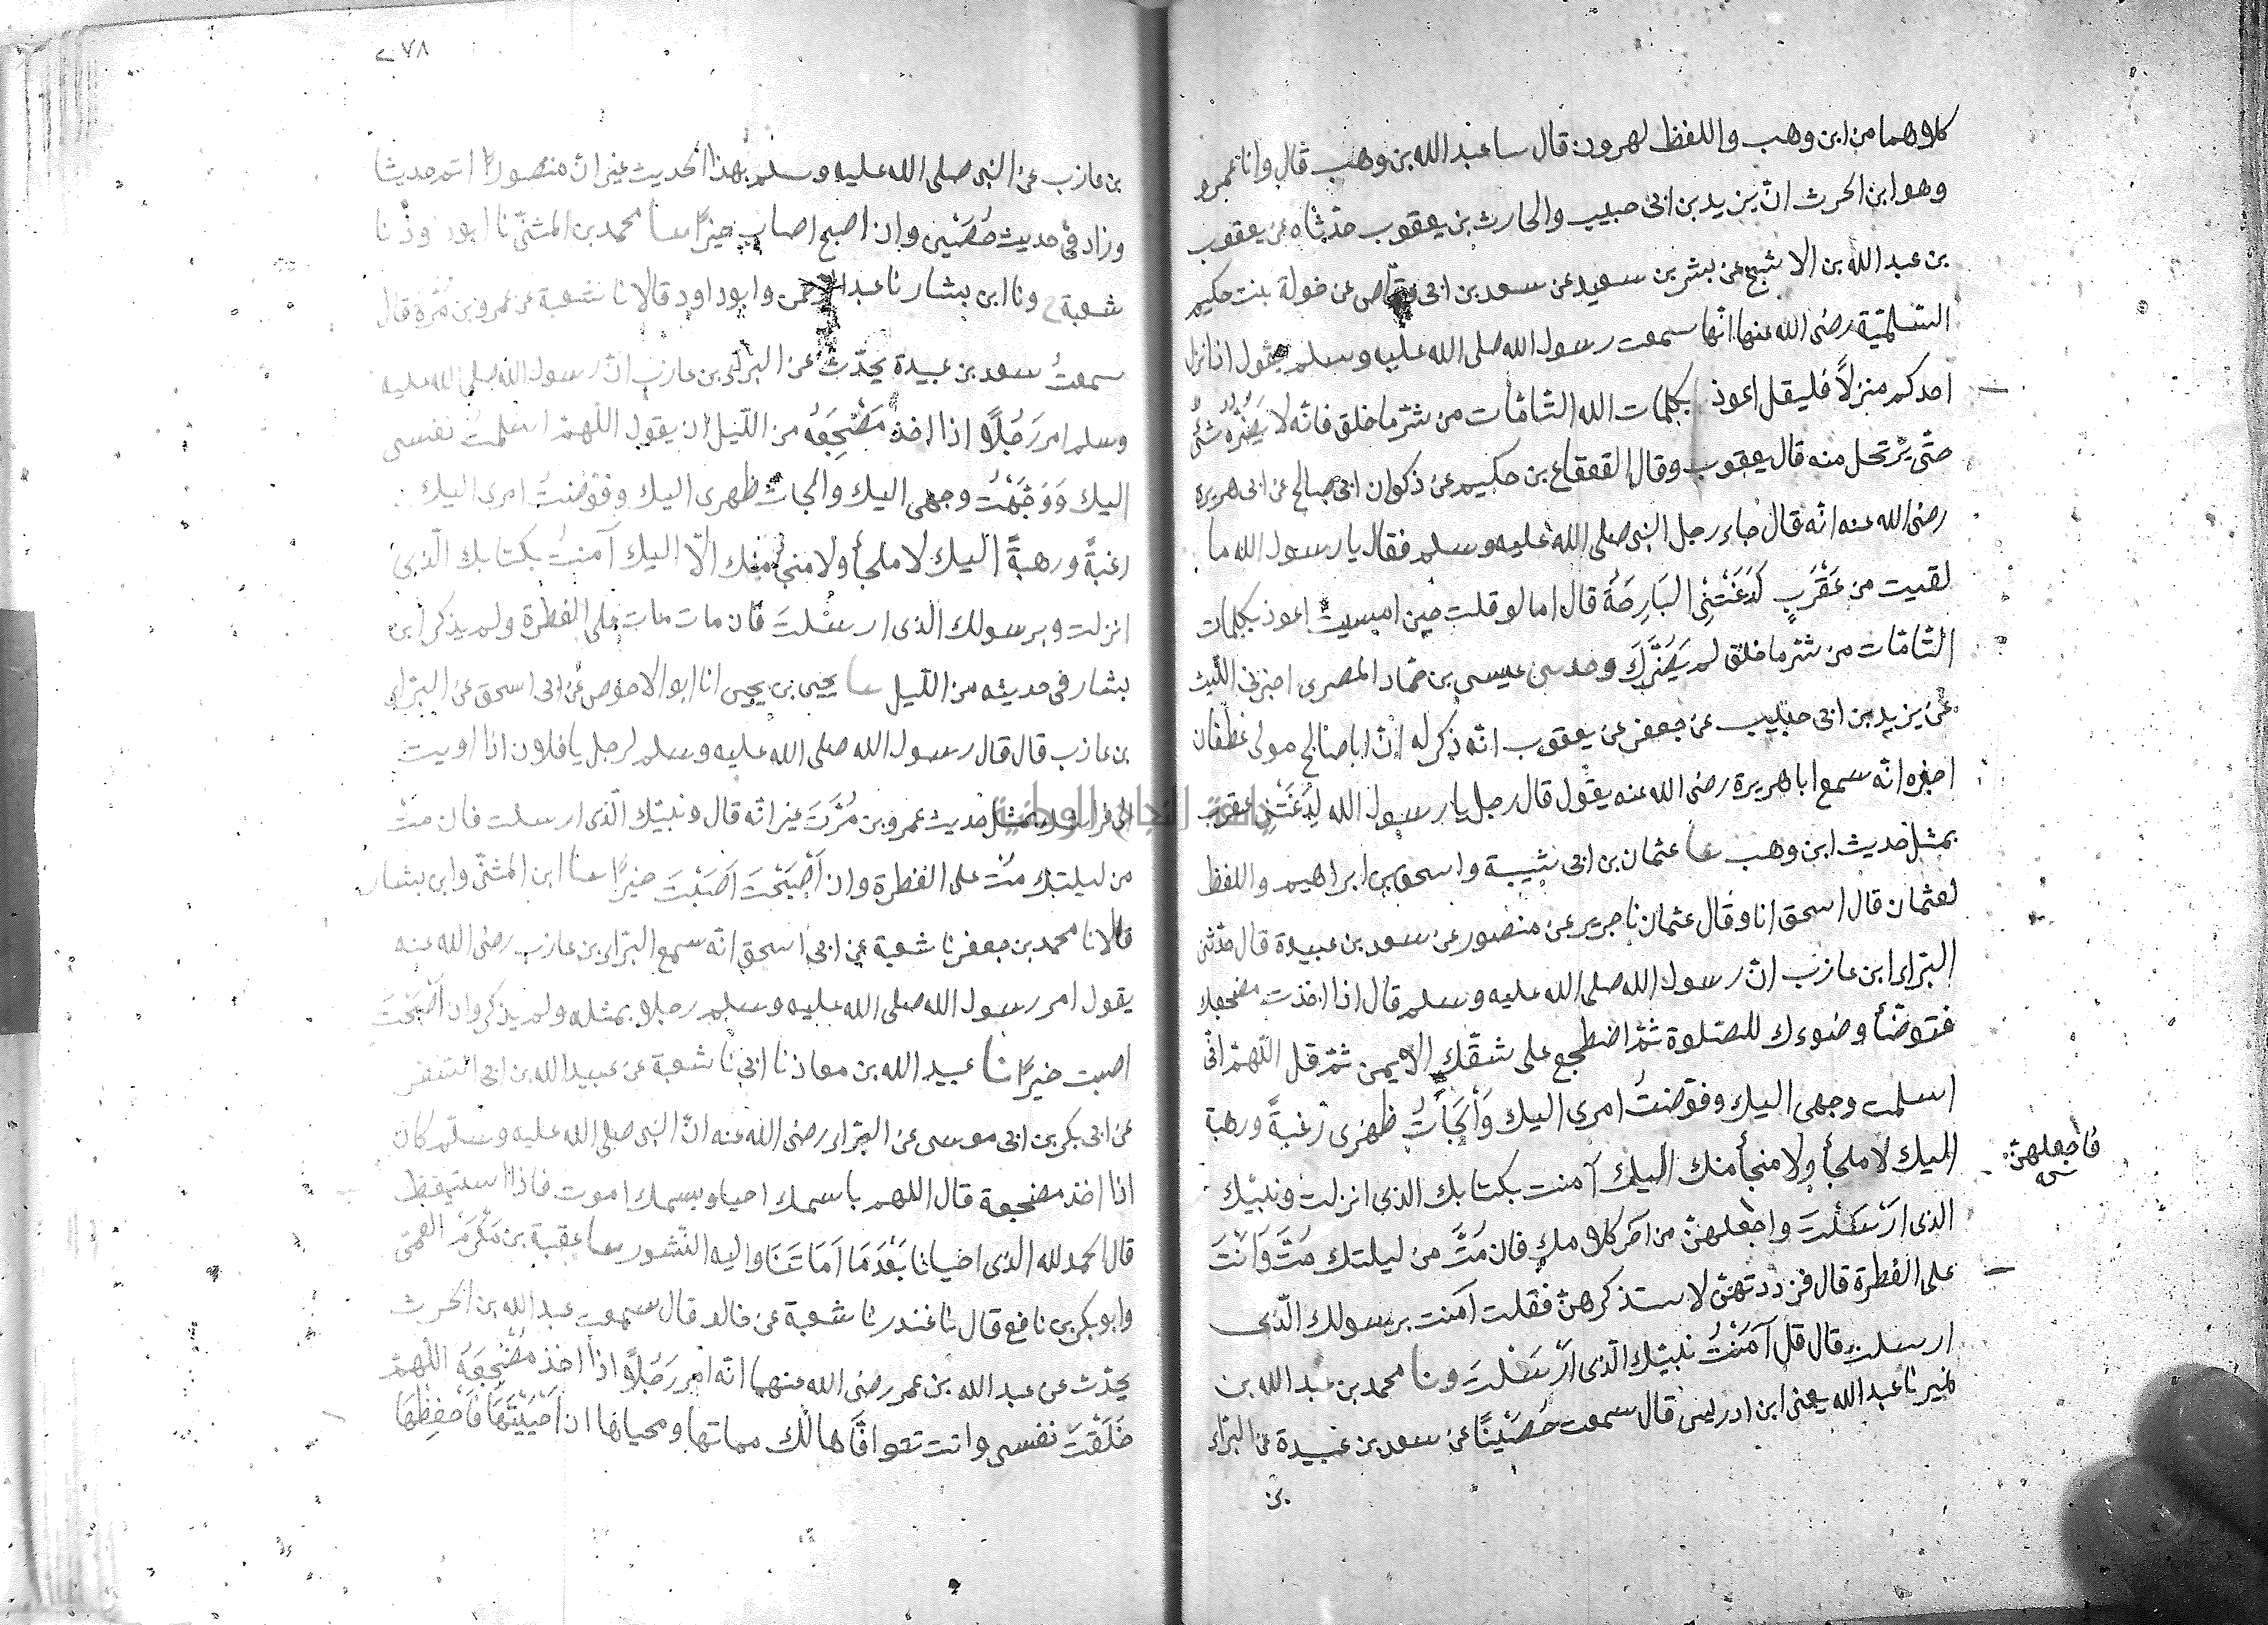 كلاهما من ابن وهب واللفظ لهرون قال سا عبد الله بن وهب قال وانا عمرو
وهو ابن الحرث انّ يزيد بن ابى حبيب والحارث بن يعقوب حدّثاه عن يعقوب
بن عبد الله بن الاشج عن بسر بن سعيد عن سعد بن ابى وقاص عن خولة بنت حكيم
السّلميّة رضى الله عنها انّها سمعت رسول الله صلى الله عليه وسلم يقول اذا نزل
احدكم منزلاً فليقل اعوذ بكلمات الله التّامّات من شرّ ما خلق فانّه لا يَضُرُّهُ شئٌ
حتّى يرتحل منه قال يعقوب وقال القعقاع بن حكيم عن ذكوان ابى صالح عن ابى هريرة
رضى الله عنه انّه قال جاء رجل النبى صلى الله عليه وسلم فقال يا رسول الله ما
لقيت من عَقْرَبٍ لَدَغَتْنِى البَارِحَةَ قال اما لو قلت حين امسيت اعوذ بكلمات
التّامّات من شرّ ما خلق لم يَضُرَّكَ وحدسى عيسى بن حمّاد المصرى اخبرنى الليث
عن يزيد بن ابى حبيب عن جعفر عن يعقوب انّه ذكر له انّ ابا صالح مولى غطفان
اخبره انّه سمع ابا هريرة رضى الله عنه يقول قال رجل يا رسول الله لَدَغَتْنِى عقرب
بمثل حديث ابن وهب سا عثمان بن ابى شيبة واسحق بن ابراهيم واللفظ
لعثمان قال اسحق انا وقال عثمان نا جرير عن منصور عن سعد بن عبيدة قال حدّثنى
البرّاء ابن عازب انّ رسول الله صلى الله عليه وسلم قال اذا اخذت مضجعك
فتوضّأ وضوءك للصّلوة ثمّ اضطجع على شقّك الايمن ثمّ قل اللّهمّ انّى
اسلمت وجهى اليك وفوّضتُ امرى اليك وَأَلْجَأْتُ ظهرى رغبةً ورهبة
اليك لا ملجأ ولا منجأ منك اليك آمنت بكتابك الذى انزلت ونبيّك
الذى ارْسَلْتَ واجعلهنّ من آخر كلامك فان مُتَّ من ليلتك مُتَّ وَأَنْتَ
على الفطرة قال فردّدتهنّ لاستذكرهنّ فقلت آمنت برسولك الّذى
ارسلت قال قل آمَنْتُ بنبيّك الّذى ارْسَلْتَ ونا محمد بن عبد الله بن
نمير نا عبد الله يعنى ابن ادريس قال سمعت حُصَيْنًا عن سعد بن عبيدة عن البرّاء
بن
فاجعلهنّ
٢٧٨
بن عازب عن النبى صلى الله عليه وسلم بهذا الحديث غير انّ منصورًا اتمّ حديثا
وزاد فى حديث حُصَيْنٍ وان اصبح اصاب خيرًا سا محمد بن المثنّى نا ابو داود نا
شعبة ح ونا ابن بشار نا عبد الرحمن وابو داود قالا نا شعبة عن عمرو بن مُرّة قال
سمعتُ سعد بن عبيدة يحدّث عن البرّاء بن عازب انّ رسول الله صلى الله عليه
وسلم امر رَجُلاً اذا اخذ مَضْجَعَهُ من اللّيل ان يقول اللّهمّ اسلمتُ نفسى
اليك وَوَجَّهْتُ وجهى اليك والجات ظهرى اليك وفوّضتُ امرى اليك
رغبةً ورهبةً اليك لا ملجأ ولا منجى منك الّا اليك آمنتُ بكتابك الّذى
انزلت وبرسولك الذى ارسلتَ فان مات مات على الفطرة ولم يذكر ابن
بشار فى حديثه من اللّيل سا يحيى بن يحيى انا ابو الاحوص عن ابى اسحق عن البرّاء
بن عازب قال قال رسول الله صلى الله عليه وسلم لرجل يا فلان اذا اويت
الى فراشك بمثل حديث عمرو بن مُرَّةَ غير انّه قال ونبيّك الّذى ارسلت فان متّ
من ليلتك متّ على الفطرة وان أَصْبَحْتَ اَصَبْتَ خيرًا سا ابن المثنّى وابن بشار
قالا نا محمد بن جعفر نا شعبة عن ابى اسحق انّه سمع البرّاء بن عازب رضى الله عنه
يقول امر رسول الله صلى الله عليه وسلم رجلا بمثله ولم يذكر وان أصْبَحْتَ
اصبت خيرًا نا عبيد الله بن معاذ نا ابى نا شعبة عن عبيد الله بن ابى السّفر
عن ابى بكر بن ابى موسى عن البرّاء رضى الله عنه انّ النبى صلى الله عليه وسلّم كان
اذا اخذ مضجعة قال اللهم باسمك احيا وبسمك اموت فاذا استيقظ
قال الحمد لله الذى احيانا بَعْدَمَا اَمَاتَنَا واليه النّشور سا عقبة بن مُكْرَم العمّى
وابو بكر بن نافع قال نا غندر نا شعبة عن خالد قال سمعت عبد الله بن الحرث
يحدّث عن عبد الله بن عمر رضى الله عنهما انّه امر رَجُلاً اذا اخذ مَضْجَعَهُ اللّهمّ
خَلَقْتَ نفسى وانت تتوافّاها لك مماتها ومحياها ان اَحْيَيْتَهَا فَاحْفِظْهَا